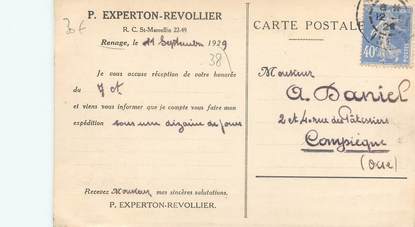 3€
P. EXPERTON-REVOLLIER
R. C. St-Marcellin 22-49
Renage, le 11 Septembre 1929
38
Je vous accuse réception de votre honorée
du 7 ct
et viens vous informer que je compte vous faire mon
expédition sous une dizaine de jours
Recevez Monsieur mes sincères salutations.
P. EXPERTON-REVOLLIER.
CARTE POSTALE
40
Monsieur
A. Daniel
2 et 4 rue des Pâtissiers
Compiègne
(Oise)